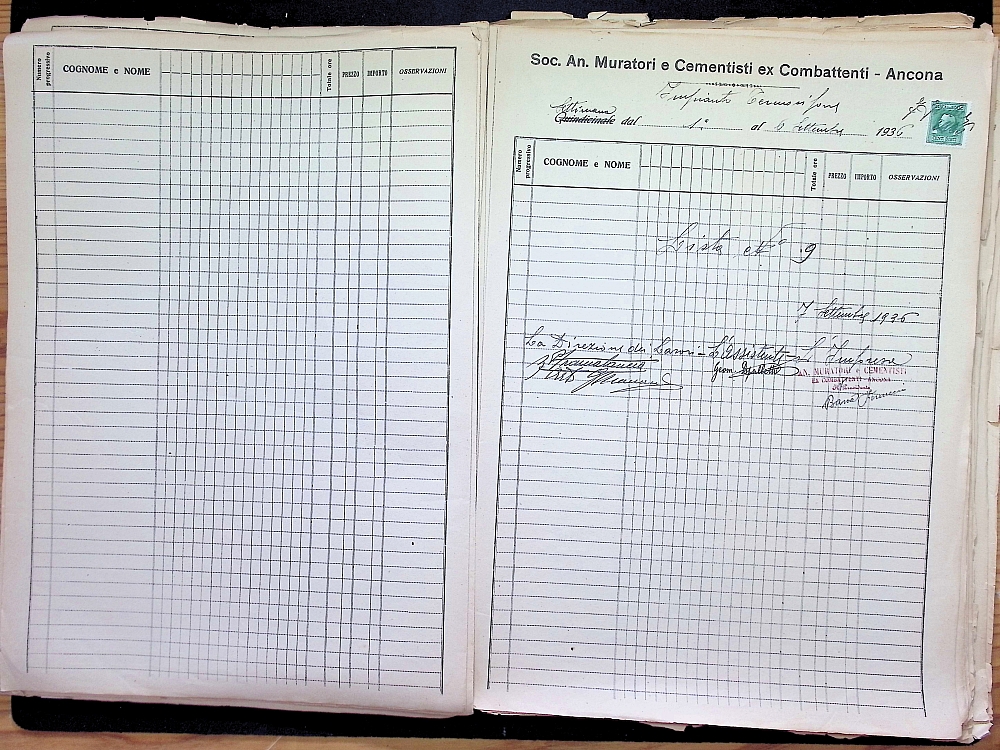 Numero progressivo COGNOME e NOME Totale ore PREZZO IMPORTO OSSERVAZIONI
Soc. An. Muratori e Cementisti ex Combattenti - Ancona
Impianto Termosifone
Settimana
Quindicinale dal 1° al 6 Settembre 1936
Numero progressivo COGNOME e NOME Totale ore PREZZO IMPORTO OSSERVAZIONI
Lista N° 9
7 Settembre 1936
La Direzione dei Lavori - L'Assistente - L'Impresa
Geom.
AN. MURATORI e CEMENTISTI
EX COMBATTENTI - ANCONA